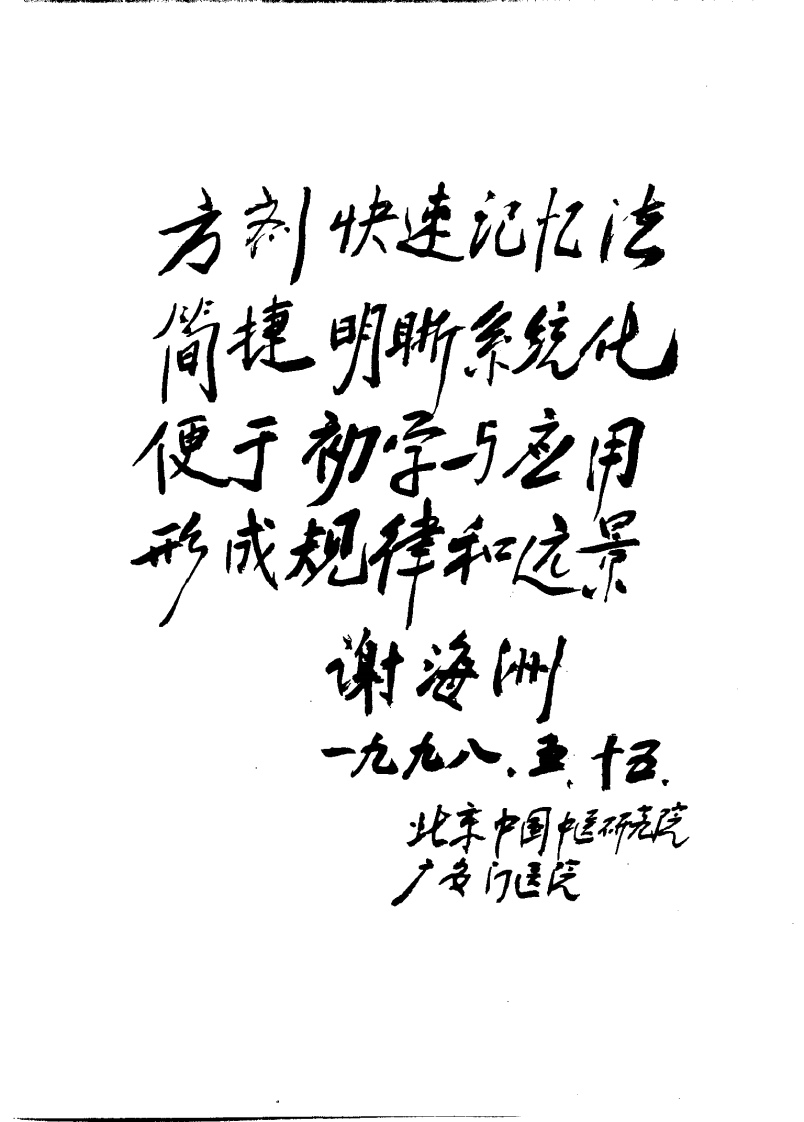 方剂快速记忆法
简捷明晰系统化
便于初学与应用
形成规律和远景
谢海洲
一九九八、五、十五、
北京中国中医研究院
广安门医院